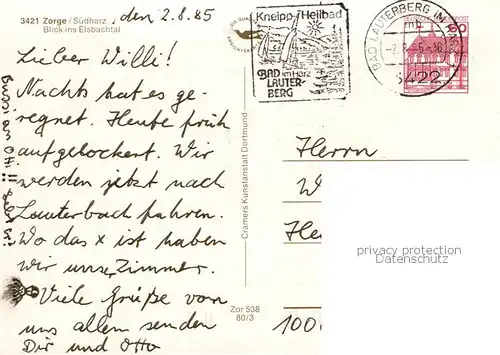 3421 Zorge / Südharz, den 2.8.85
Blick ins Elsbachtal
Lieber Willi!
Nachts hat es ge-
regnet. Heute früh
aufgelockert. Wir
werden jetzt nach
Lauterbach fahren.
Wo das x ist haben
wir unser Zimmer.
Viele Grüße von
uns allem senden
Dir und Otto
Bussi an Otti!!
Zor 538
80/3
Cramers Kunstanstalt Dortmund
Kneipp-Heilbad
BAD im Harz
LAUTER-
BERG
BAD LAUTERBERG IM HARZ
mb
3422
Herrn
W
He
privacy protection
100